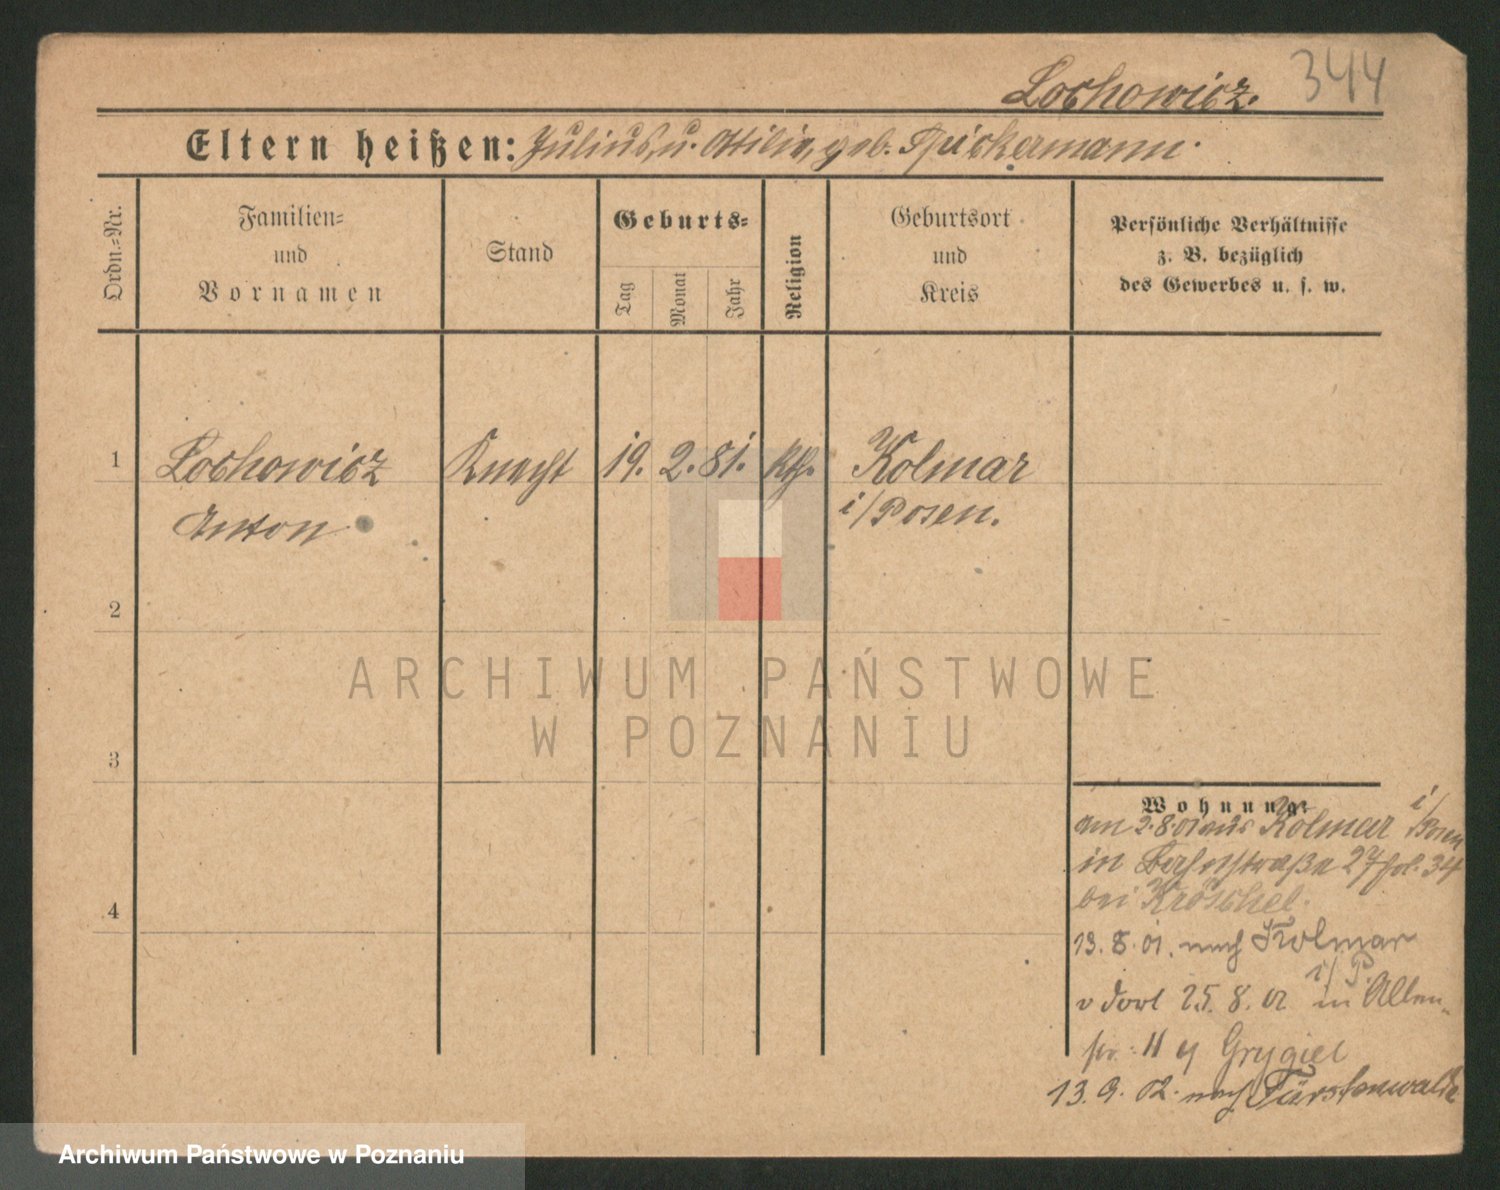 Lochowicz. 344
Eltern heißen: Julius, u. Ottilie, geb. Spickermann.
Ordn.=Nr.
Familien=
und
Vornamen
Stand
Geburts=
Tag
Monat
Jahr
Religion
Geburtsort
und
Kreis
Persönliche Verhältnisse
z. B. bezüglich
des Gewerbes u. s. w.
1 Lochowicz Knecht 19. 2. 81. kth. Kolmar
Anton i/Posen.
2
3
4
ARCHIWUM PAŃSTWOWE
W POZNANIU
Wohnung:
am 2.8.01 aus Kolmar i/Posen
in 27 34
bei Kröschel.
13. 8. 01. nach Kolmar
i/P.
v dort 25. 8. 02 in Allen-
str. 11 Grygiel
13. 9. 02. nach Fürstenwalde
Archiwum Państwowe w Poznaniu